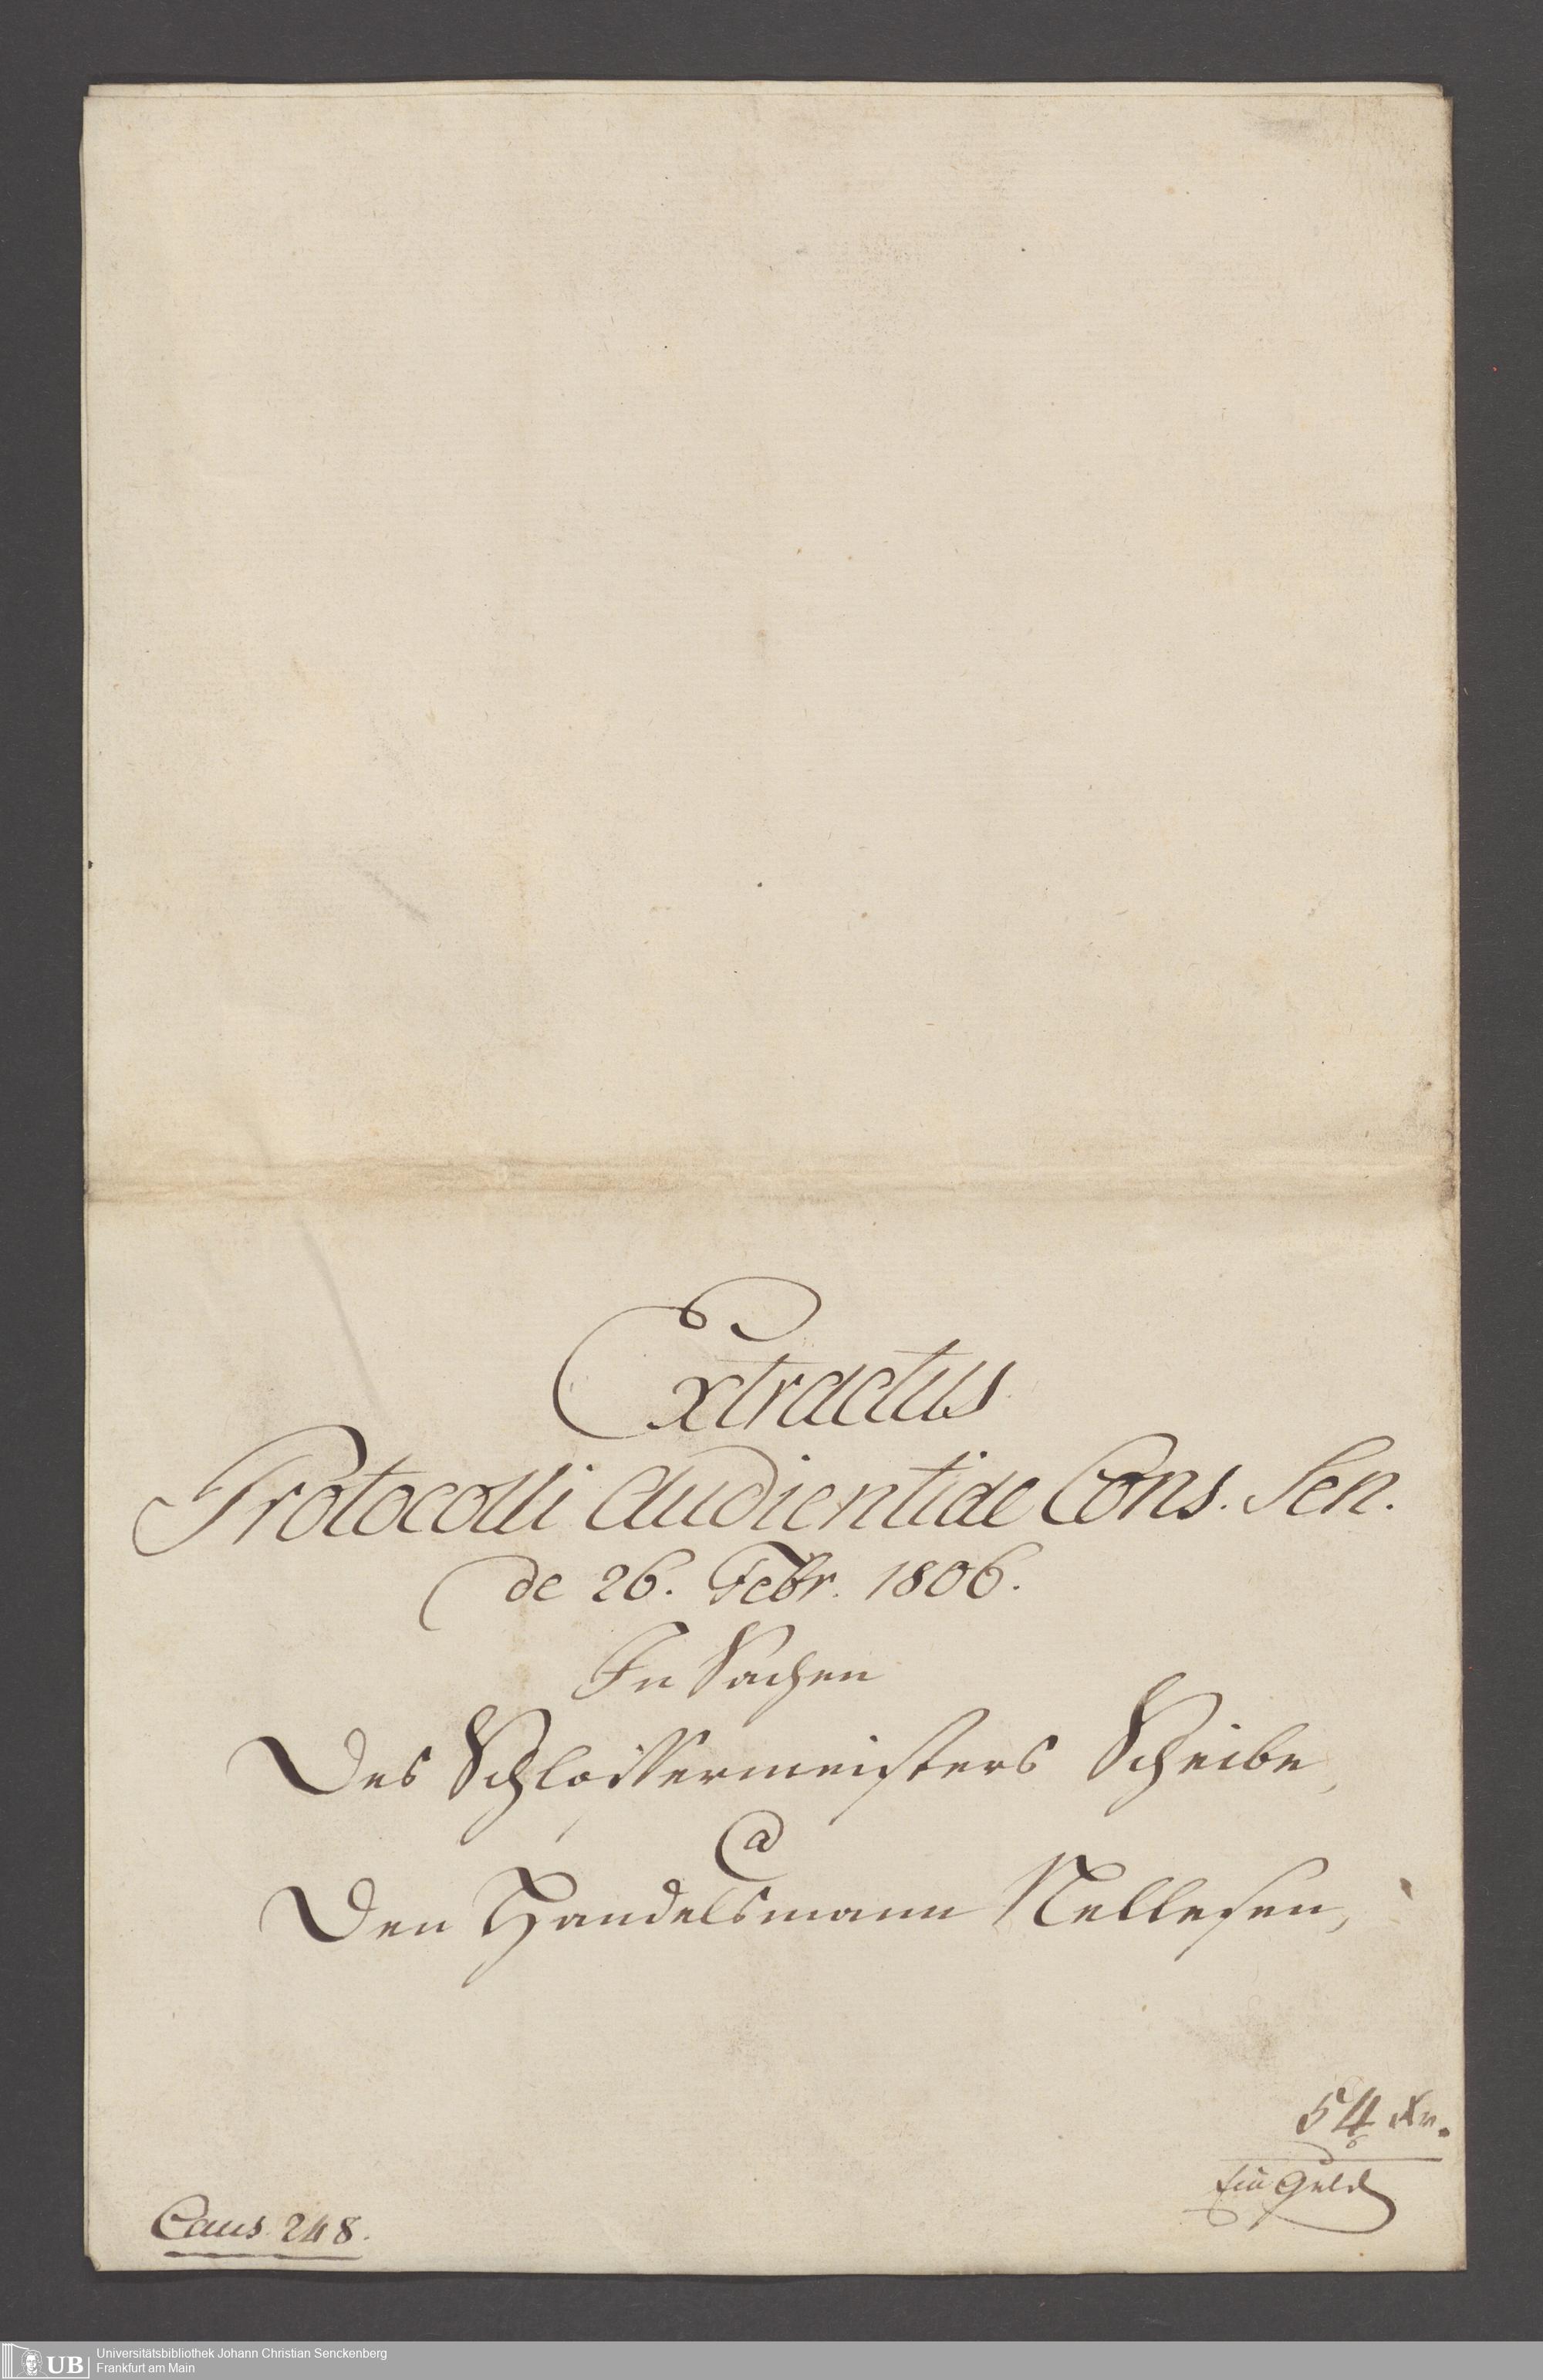 Extractus
Protocolli Audientiae Cons. Sen.
de 26. Febr. 1806.
In Sachen
Des Schlossermeisters Scheibe,
a
Den Handelsmann Nellesen,
54 Xr.
Caus. 248.
UB Universitätsbibliothek Johann Christian Senckenberg
Frankfurt am Main